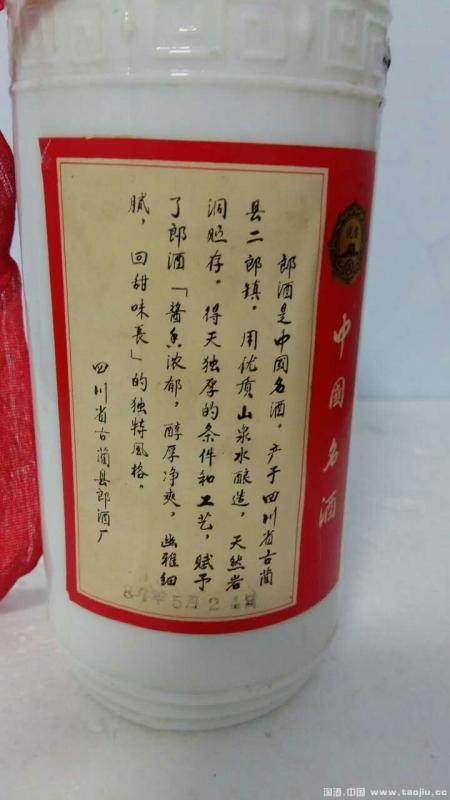 郎酒是中国名酒。产于四川省古蔺
县二郎镇。用优质山泉水酿造，天然岩
洞贮存。得天独厚的条件和工艺，赋予
了郎酒「醬香浓郁，醇厚净爽，幽雅细
腻，回甜味長」的独特風格。
四川省古蔺县郎酒厂
87年5月2
中国名酒
淘酒.中国 www.taojiu.cc